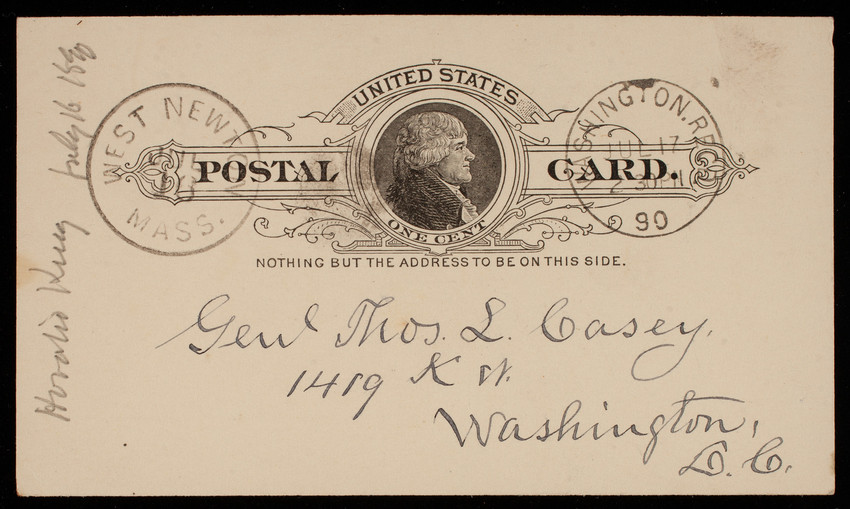 UNITED STATES
POSTAL CARD.
ONE CENT
NOTHING BUT THE ADDRESS TO BE ON THIS SIDE.
WEST NEWTON
MASS.
WASHINGTON, RE
JUL 17
2 30 PM
90
Genl Thos. L. Casey.
1419 K St.
Washington,
D. C.
Horatio King July 16 1890